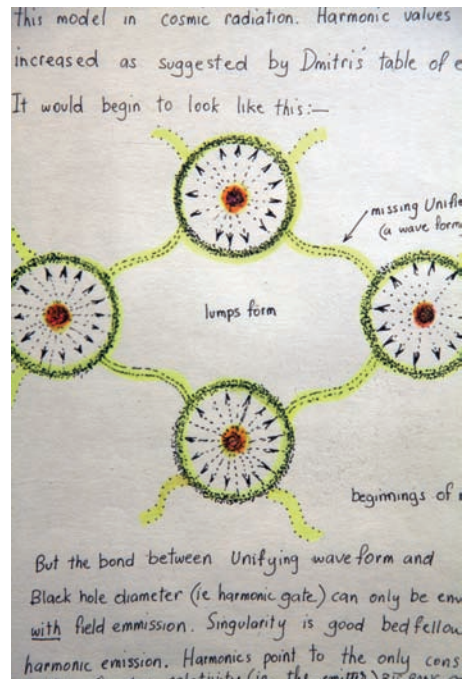 this model in cosmic radiation. Harmonic values
increased as suggested by Dmitri's table of e
It would begin to look like this:—
missing Unifie
(a wave form
lumps form
beginnings of
But the bond between Unifying wave form and
Black hole diameter (ie harmonic gate) can only be env
with field emmission. Singularity is good bed fellow
harmonic emission. Harmonics point to the only cons
relativity (ie the